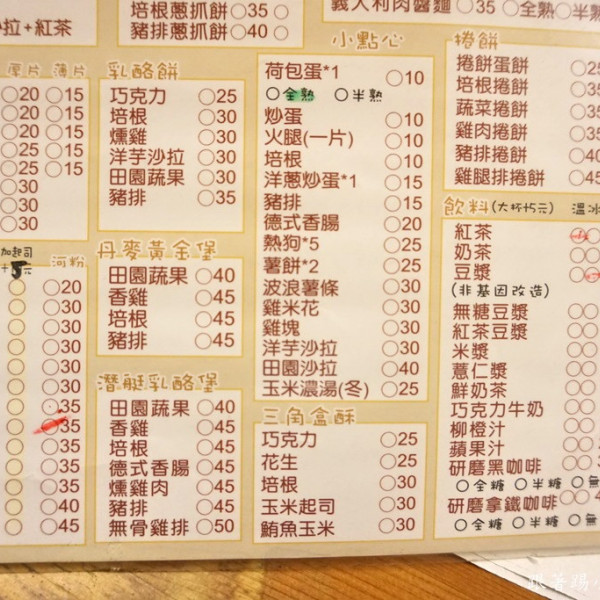 沙拉+紅茶
培根蔥抓餅 ○35 ○
豬排蔥抓餅 ○40 ○
義大利肉醬麵 ○35 ○全熟○半熟
厚片 薄片
○20 ○15
○20 ○15
○20 ○15
○25 ○15
○25 ○15
○30
○30
○30
加起司
+5元
河粉
○ ○20
○ ○30
○ ○30
○ ○30
○ ○30
○ ○30
○ ○35
○ ○35
○ ○35
○ ○35
○ ○35
○ ○40
○ ○45
乳酪餅
巧克力 ○25
培根 ○30
燻雞 ○30
洋芋沙拉 ○30
田園蔬果 ○30
豬排 ○35
丹麥黃金堡
田園蔬果 ○40
香雞 ○45
培根 ○45
豬排 ○45
潛艇乳酪堡
田園蔬果 ○40
香雞 ○45
培根 ○45
德式香腸 ○45
燻雞肉 ○45
豬排 ○45
無骨雞排 ○50
小點心
荷包蛋*1 ○10
○全熟 ○半熟
炒蛋 ○10
火腿(一片) ○10
培根 ○10
洋蔥炒蛋*1 ○15
豬排 ○15
德式香腸 ○20
熱狗*5 ○25
薯餅*2 ○25
波浪薯條 ○30
雞米花 ○30
雞塊 ○30
洋芋沙拉 ○30
田園沙拉 ○40
玉米濃湯(冬) ○25
三角盒酥
巧克力 ○25
花生 ○25
培根 ○30
玉米起司 ○30
鮪魚玉米 ○30
捲餅
捲餅蛋餅 ○25
培根捲餅 ○35
蔬菜捲餅 ○35
雞肉捲餅 ○35
豬排捲餅 ○40
雞腿排捲餅 ○45
飲料(大杯+5元) 溫冰
紅茶
奶茶
豆漿
(非基因改造)
無糖豆漿 ○○
紅茶豆漿 ○○
米漿 ○○
薏仁漿 ○○
鮮奶茶 ○○
巧克力牛奶 ○○
柳橙汁 ○○
蘋果汁 ○○
研磨黑咖啡 ○○
○全糖 ○半糖 ○無
研磨拿鐵咖啡 ○○
○全糖 ○半糖 ○無